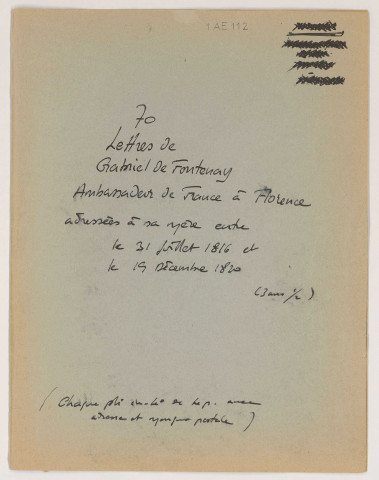 1 AE 112
70
Lettres de
Gabriel de Fontenay
Ambassadeur de France à Florence
adressées à sa mère entre
le 31 Juillet 1816 et
le 19 Décembre 1820
(3 ans 1/2)
(Chaque pli avec
adresse et marque postale)